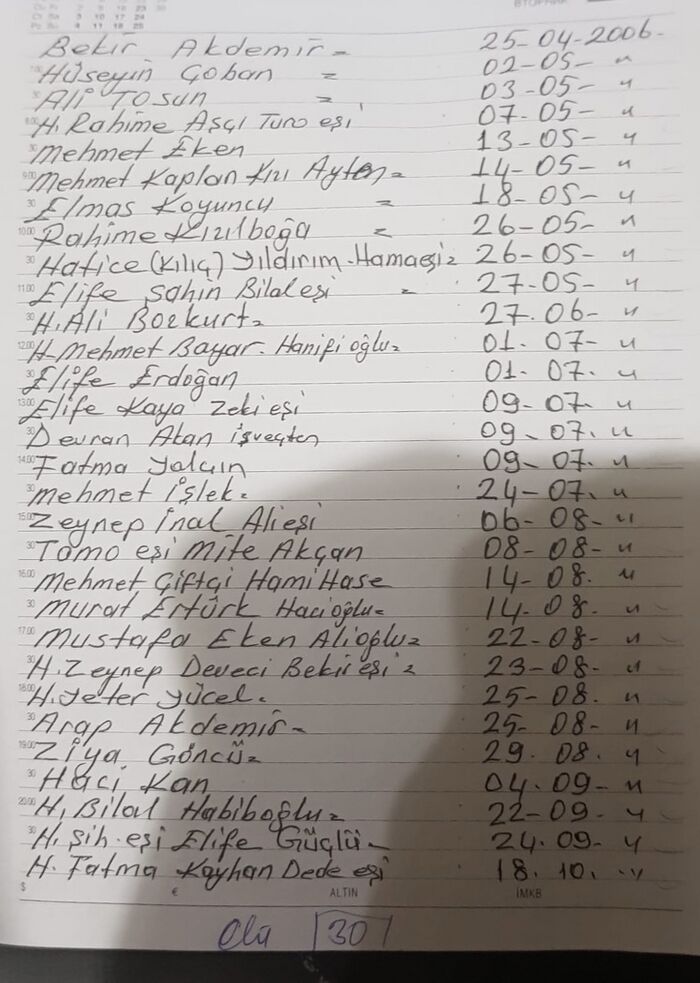 ВТОРНИК
Bekir Akdemir = 25-04-2006-
Hüseyin Çoban = 02-05- "
Ali Tosun = 03-05- "
H. Rahime Aşçı Turo eşi 07-05- "
Mehmet Eken 13-05- "
Mehmet Kaplan Kızı Ayten= 14-05- "
Elmas Koyuncu = 18-05- "
Rahime Kızılboğa = 26-05- "
Hatice (Kılıç) Yıldırım-Hamaeşi= 26-05- "
Elife Şahin Bilaleşi = 27-05- "
H. Ali Bozkurt= 27.06- "
H-Mehmet Bayar. Hanifioğlu= 01.07- "
Elife Erdoğan 01-07. "
Elife Kaya Zekieşi 09-07- "
Devran Akan işveçten 09-07. "
Fatma Yalçın 09-07. "
Mehmet İşlek= 24-07. "
Zeynep İnal Alieşi 06-08- "
Tomo eşi Mite Akçan 08-08- "
Mehmet Çiftçi HamiHase 14-08. "
Murat Ertürk Hacıoğlu= 14-08. "
Mustafa Eken Alioğlu= 22-08- "
H. Zeynep Deveci Bekireşi= 23-08- "
H. Yeter Yücel. 25-08. "
Arap Akdemir- 25-08- "
Ziya Göncü= 29.08. "
Haci Kan 04.09- "
H, Bilal Habiboğlu= 22-09. "
H. Şıh.eşi Elife Güçlü- 24.09- "
H. Fatma Kayhan Dede eşi 18.10. "
$ € ALTIN İMKB
30